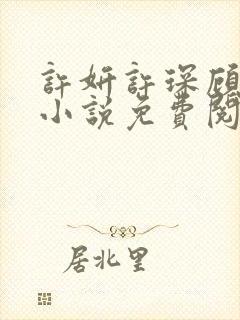 許妍許琛顧
小說免費閱
居北里